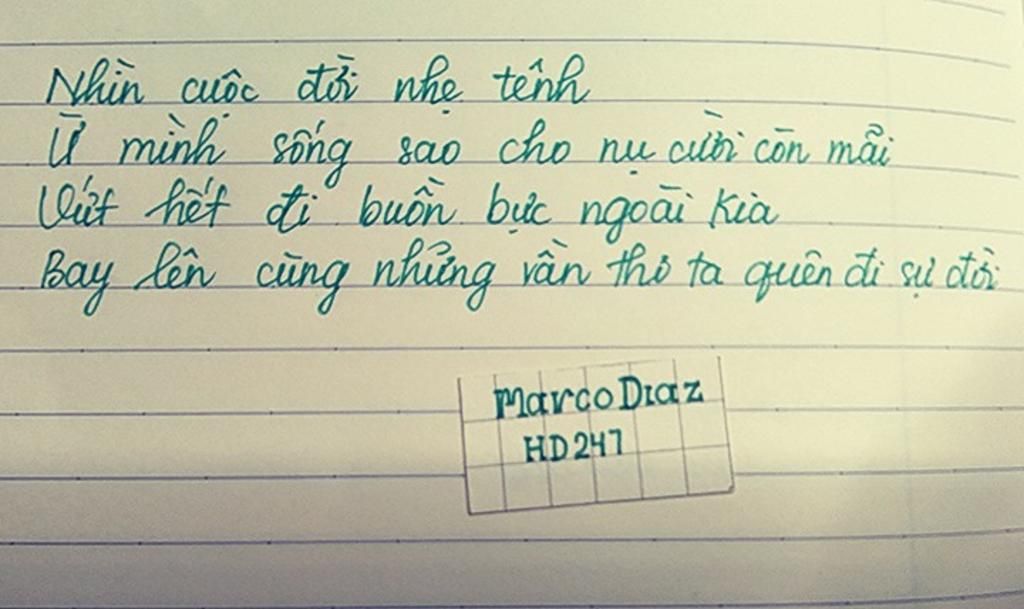 Nhìn cuộc đời nhẹ tênh
Ừ mình sống sao cho nụ cười còn mãi
Vứt hết đi buồn bực ngoài kia
Bay lên cùng những vần thơ ta quên đi sự đời
Marco Diaz
HD247